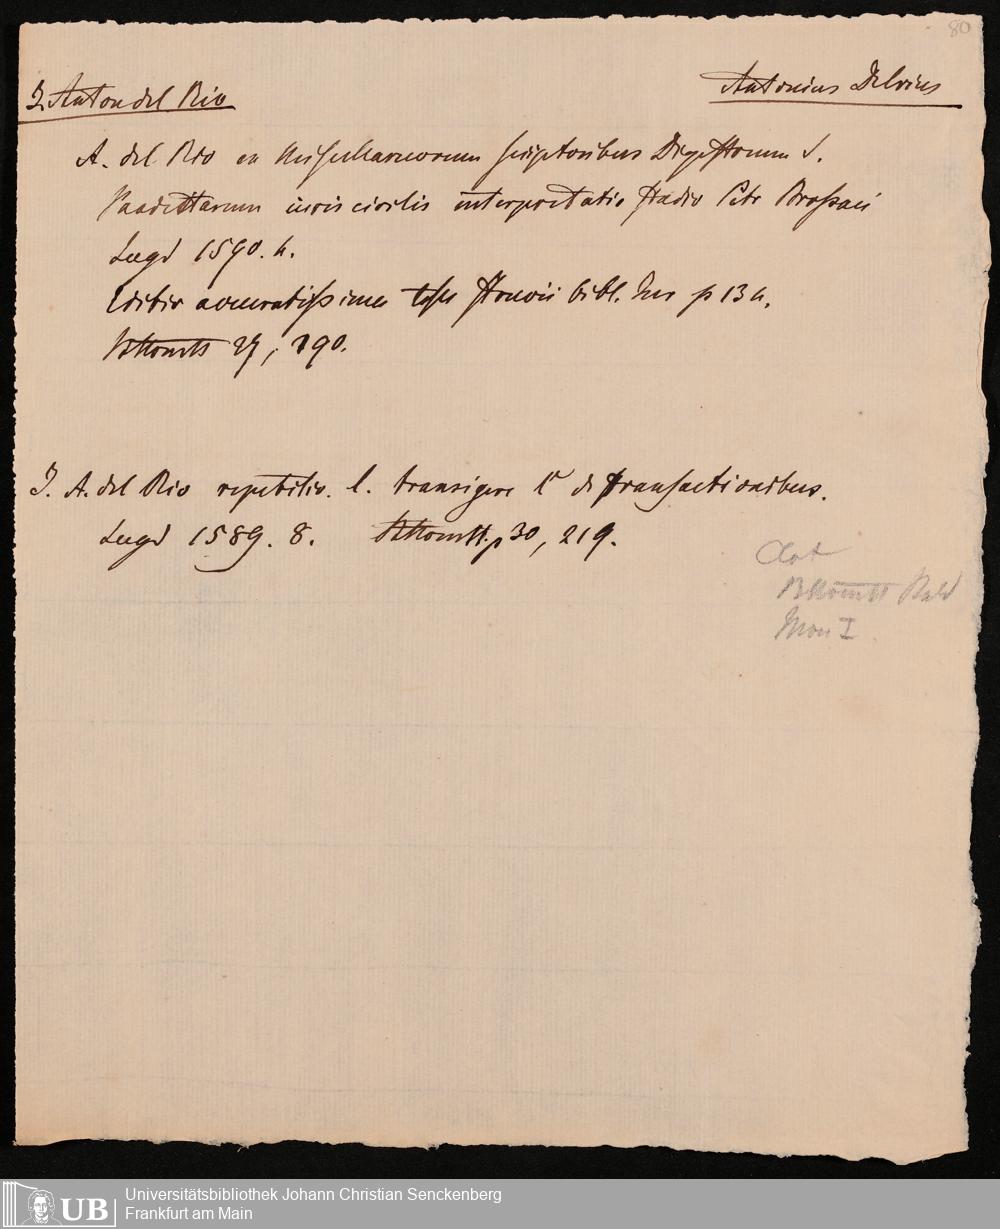 80
Antonius Delrius
J. Anton del Rio
A. del Rio ex Miscellaneorum scriptoribus Digestorum s.
Pandectarum iuris civilis interpretatio studio Petr Brossaei
Lugd 1590. 4.
Editio accuratissima teste Struvii bibl. Iur p 134.
27, 190.
J. A. del Rio repetitio. l. transigere C de transactionibus.
Lugd 1589. 8. p 30, 219.
Mon I
Universitätsbibliothek Johann Christian Senckenberg
Frankfurt am Main
UB